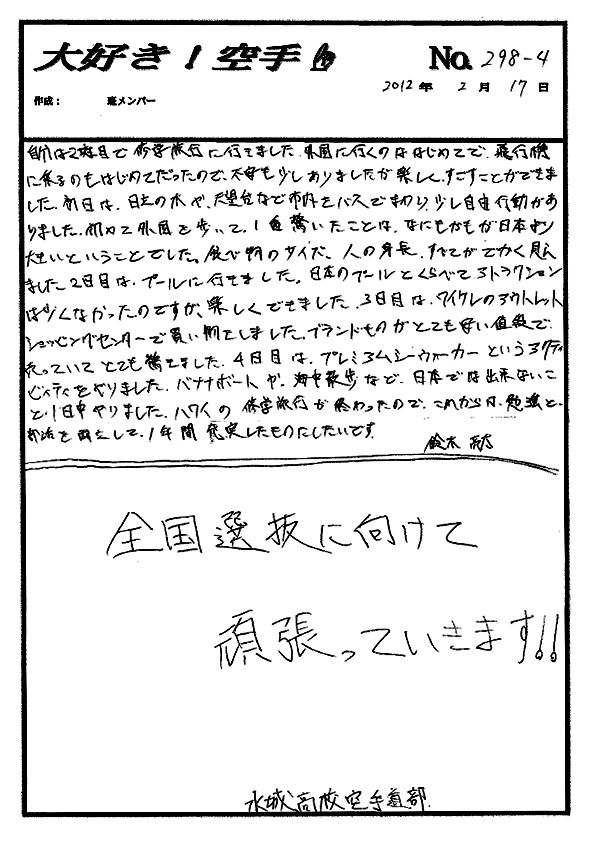 大好き!空手
No. 298-4
2012年 2月 17日
作成: 班メンバー
自分は2班目で修学旅行に行きました。外国に行くのははじめてで、飛行機
に乗るのもはじめてだったので、不安も少しありましたが楽しく、すごすことができま
した。初日は、日立の木や、展望台など市内をバスでまわり、少し自由行動があ
りました。初めて外国を歩いて、1番驚いたことは、なにもかもが日本より
大きいということでした。食べ物のサイズ、人の身長、すべてがでかく見え
ました。2日目は、プールに行きました。日本のプールとくらべてアトラクション
は少くなかったのですが、楽しくできました。3日目は、ワイケレのアウトレット
ショッピングセンターで買い物をしました。ブランドものがとても安い値段で、
売っていてとても驚きました。4日目は、プレミアムシーウォーカーというアクティ
ビティをやりました。バナナボートや、海中散歩など、日本では出来ないこ
と1日中やりました。ハワイの修学旅行が終わったので、これからは、勉強と、
部活を両立して、1年間充実したものにしたいです。
鈴木
全国選抜に向けて
頑張っていきます!!
水城高校空手道部